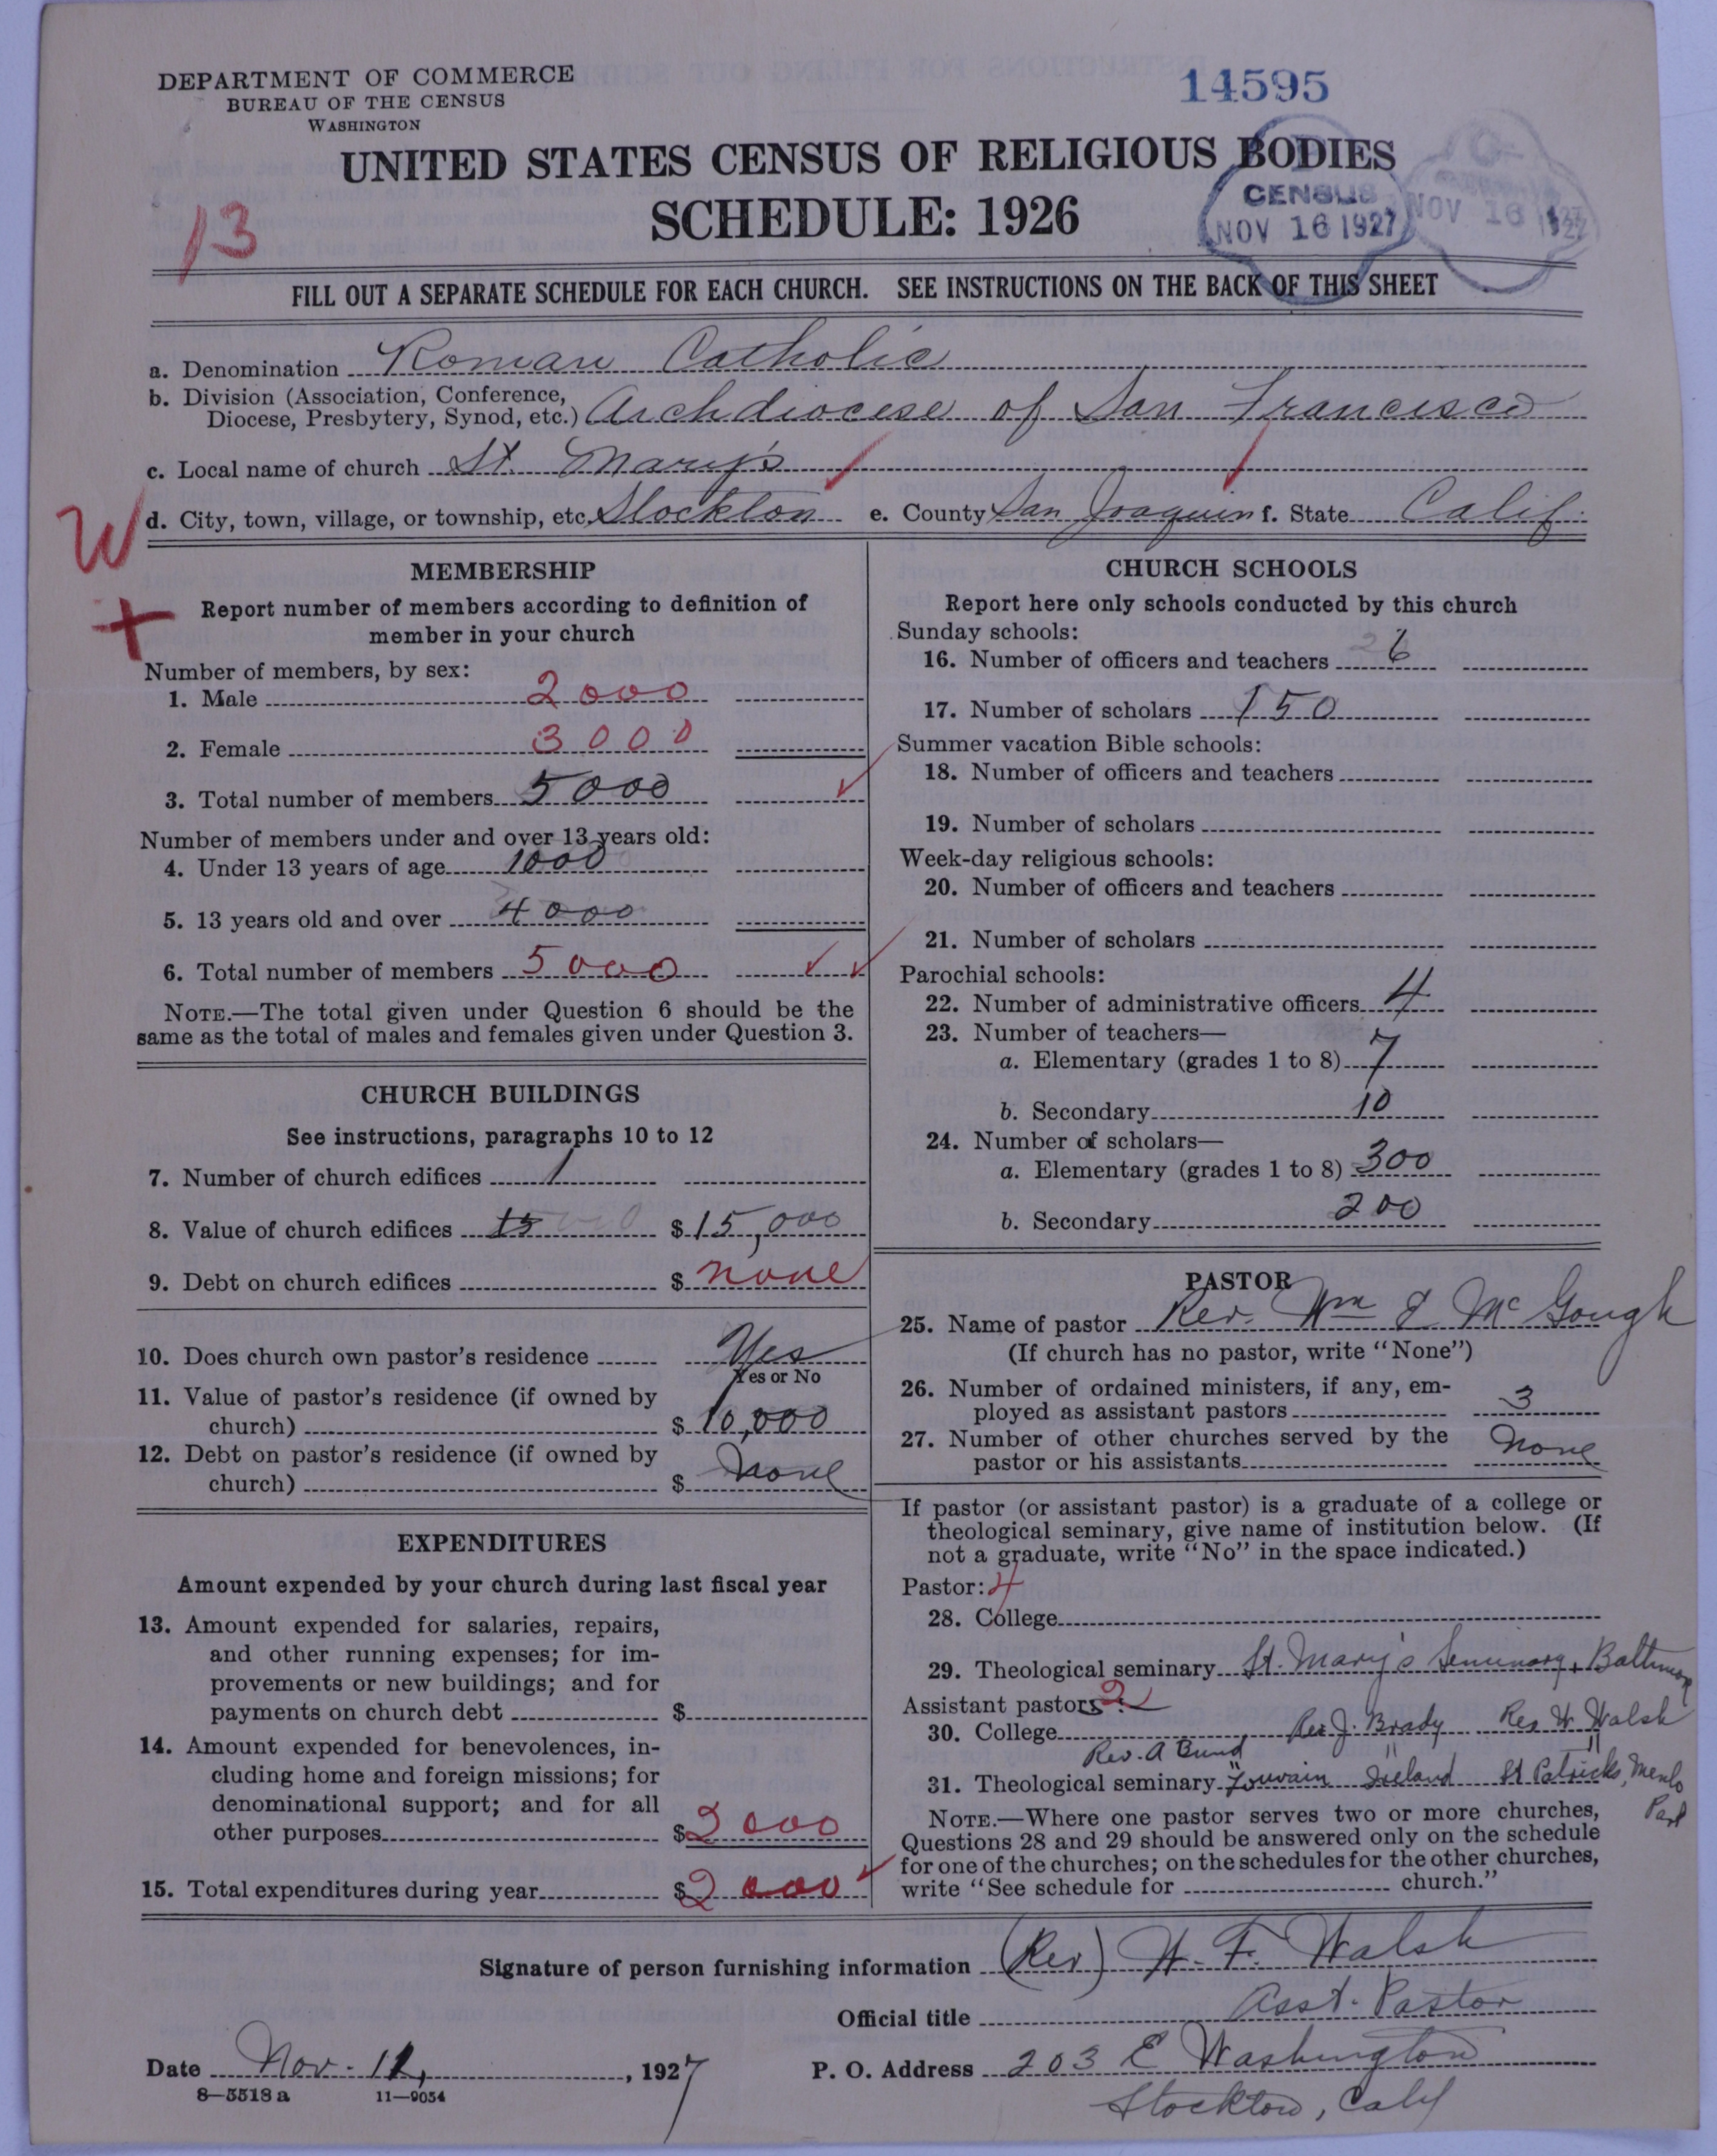 DEPARTMENT OF COMMERCE
BUREAU OF THE CENSUS
WASHINGTON
14595
UNITED STATES CENSUS OF RELIGIOUS BODIES
SCHEDULE: 1926
13
CENSUS
NOV 16 1927
NOV 16
FILL OUT A SEPARATE SCHEDULE FOR EACH CHURCH. SEE INSTRUCTIONS ON THE BACK OF THIS SHEET
a. Denomination Roman Catholic
b. Division (Association, Conference,
Diocese, Presbytery, Synod, etc.) Archdiocese of San Francisco
c. Local name of church St. Mary's
W
d. City, town, village, or township, etc. Stockton e. County San Joaquin f. State Calif.
MEMBERSHIP
+
Report number of members according to definition of
member in your church
Number of members, by sex:
1. Male 2000
2. Female 3000
3. Total number of members 5000
Number of members under and over 13 years old:
4. Under 13 years of age 1000
5. 13 years old and over 4000
6. Total number of members 5000
NOTE.—The total given under Question 6 should be the
same as the total of males and females given under Question 3.
CHURCH BUILDINGS
See instructions, paragraphs 10 to 12
7. Number of church edifices 1
8. Value of church edifices 15000 $15,000
9. Debt on church edifices $ none
10. Does church own pastor's residence Yes
Yes or No
11. Value of pastor's residence (if owned by
church) $10,000
12. Debt on pastor's residence (if owned by
church) $ None
EXPENDITURES
Amount expended by your church during last fiscal year
13. Amount expended for salaries, repairs,
and other running expenses; for im-
provements or new buildings; and for
payments on church debt $
14. Amount expended for benevolences, in-
cluding home and foreign missions; for
denominational support; and for all
other purposes $2000
15. Total expenditures during year $2000
CHURCH SCHOOLS
Report here only schools conducted by this church
Sunday schools:
16. Number of officers and teachers 6
17. Number of scholars 150
Summer vacation Bible schools:
18. Number of officers and teachers
19. Number of scholars
Week-day religious schools:
20. Number of officers and teachers
21. Number of scholars
Parochial schools:
22. Number of administrative officers 4
23. Number of teachers—
a. Elementary (grades 1 to 8) 7
b. Secondary 10
24. Number of scholars—
a. Elementary (grades 1 to 8) 300
b. Secondary 200
PASTOR
25. Name of pastor Rev. Wm E McGough
(If church has no pastor, write "None")
26. Number of ordained ministers, if any, em-
ployed as assistant pastors 3
27. Number of other churches served by the
pastor or his assistants None
If pastor (or assistant pastor) is a graduate of a college or
theological seminary, give name of institution below. (If
not a graduate, write "No" in the space indicated.)
Pastor: 4
28. College
29. Theological seminary St. Mary's Seminary, Baltimore
Assistant pastors: 2
30. College Rev J. Brady Rev W. Walsh
Rev. A Bund " "
31. Theological seminary Louvain Ireland St Patricks, Menlo
Park
NOTE.—Where one pastor serves two or more churches,
Questions 28 and 29 should be answered only on the schedule
for one of the churches; on the schedules for the other churches,
write "See schedule for church."
Signature of person furnishing information (Rev) W. F. Walsh
Official title Asst. Pastor
Date Nov. 12, 1927 P. O. Address 203 E Washington
8—5518 a 11—9054
Stockton, Calif